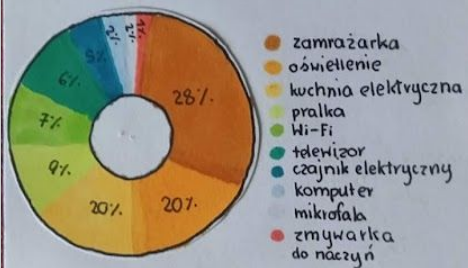 28%
20%
20%
9%
7%
6%
5%
2%
2%
1%
zamrażarka
oświellenie
kuchnia elektryczna
pralka
Wi-Fi
telewizor
czajnik elektryczny
komputer
mikrofala
zmywarka
do naczyń